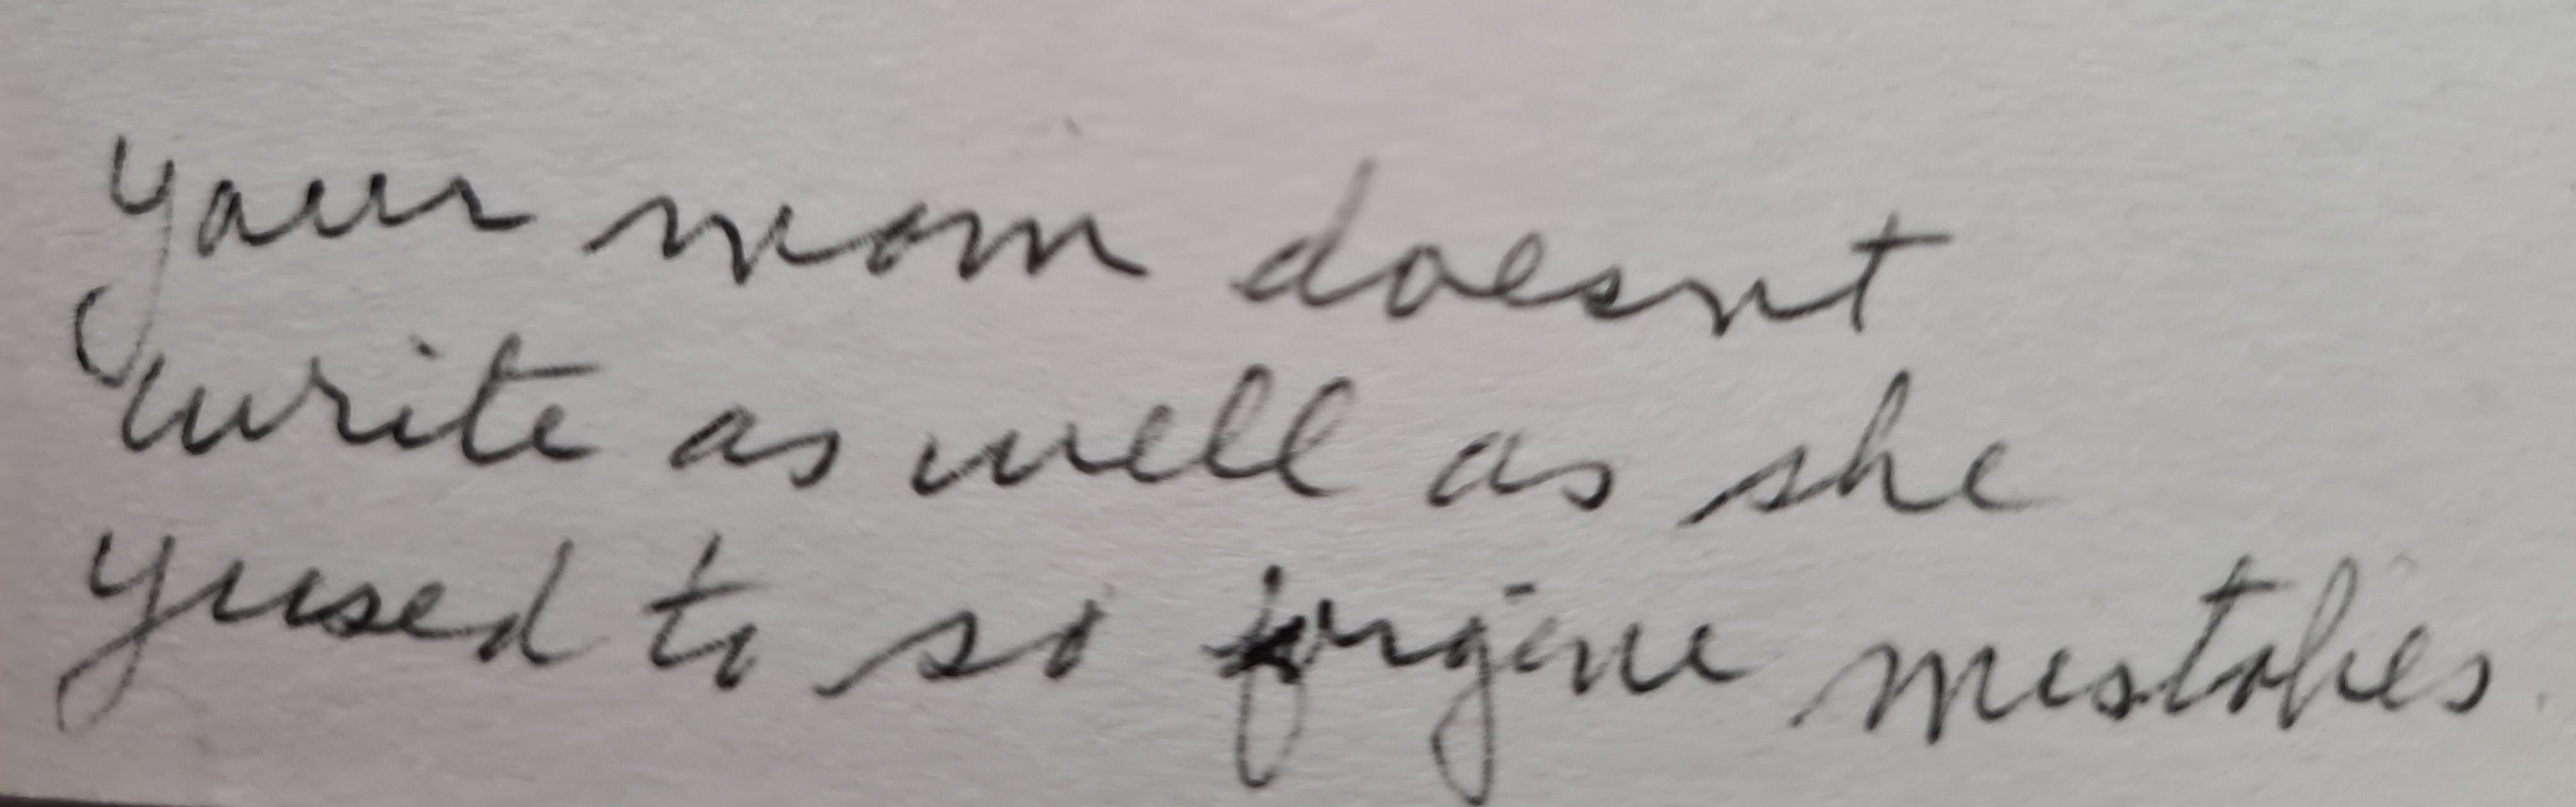 your mom doesnt
write as well as she
yused to so forgive mistakes.